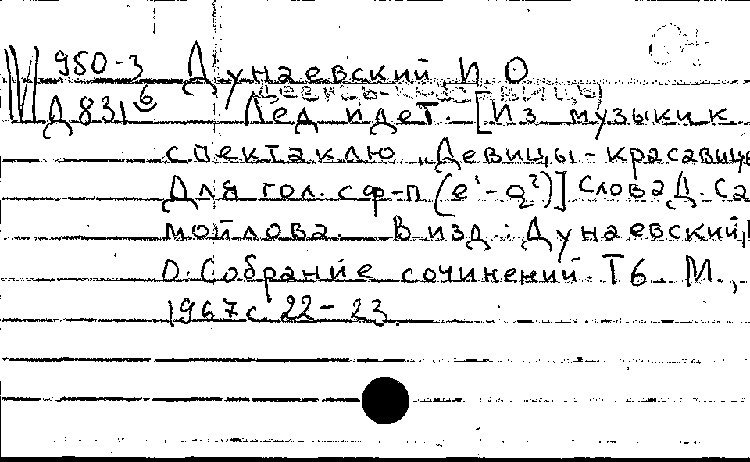 950-3 Дунаевский И О
Д831⁶ Лед идет. [Из музыки к
спектаклю „Девицы-красавицы
Для гол. с ф-п (e¹-g²)] Слова Д. Са
мойлова. В изд.: Дунаевский, И
О. Собрание сочинений. Т6. М.,
1967 с. 22-23.